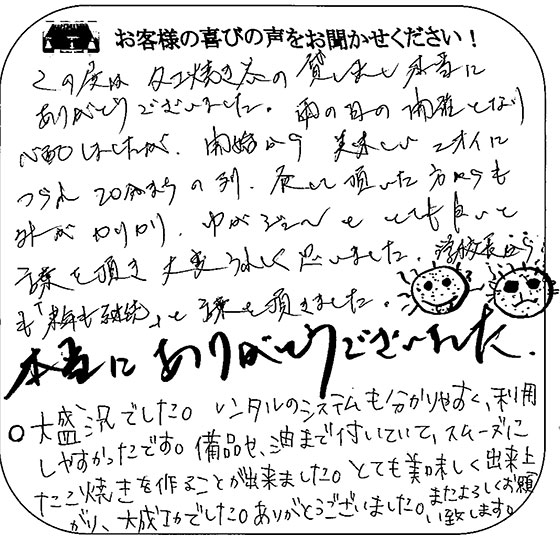 お客様の喜びの声をお聞かせください！
この度は タコ焼き器の貸し出し 本当に
ありがとうございました。雨の日の開催となり
心配しましたが、開始から 美味しいニオイに
つられ 20分まちの列、食して頂いた方からも
外がカリカリ、中がジューシーで とても良いと
言葉を頂き 大変うれしく思いました。学校長から
も「来年も継続」と言葉を頂きました。
本当に ありがとうございました。
○大盛況でした。レンタルのシステムも分かりやすく、利用
しやすかったです。備品や、油まで付いていて、スムーズに
たこ焼きを作ることが出来ました。とても美味しく出来上
がり、大成功でした。ありがとうございました。またよろしくお願
い致します。